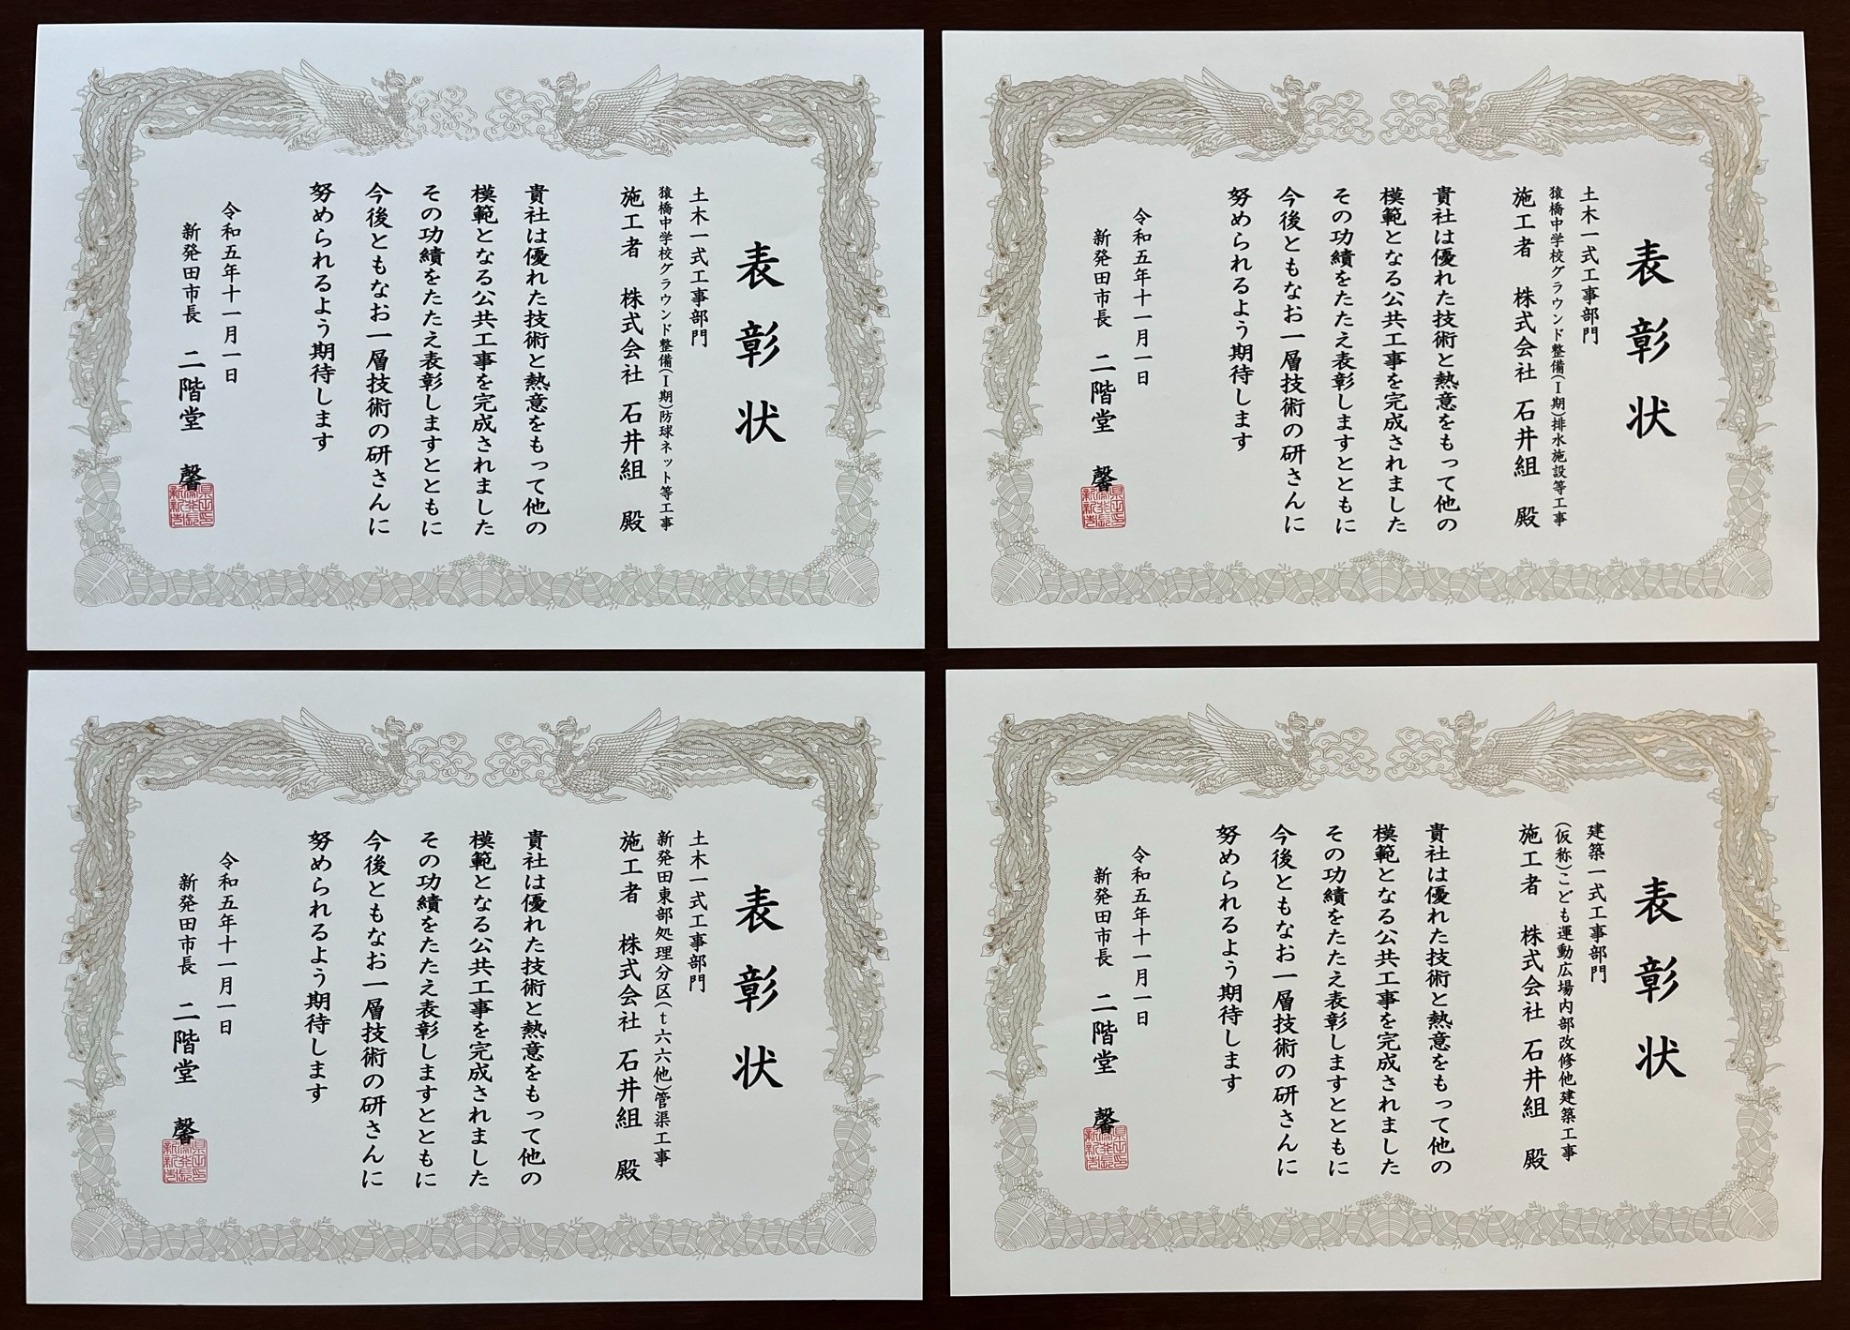 表彰状
土木一式工事部門
猿橋中学校グラウンド整備(Ⅰ期)防球ネット等工事
施工者 株式会社 石井組 殿
貴社は優れた技術と熱意をもって他の
模範となる公共工事を完成されました
その功績をたたえ表彰しますとともに
今後ともなお一層技術の研さんに
努められるよう期待します
令和五年十一月一日
新発田市長 二階堂 馨
表彰状
土木一式工事部門
猿橋中学校グラウンド整備(Ⅰ期)排水施設等工事
施工者 株式会社 石井組 殿
貴社は優れた技術と熱意をもって他の
模範となる公共工事を完成されました
その功績をたたえ表彰しますとともに
今後ともなお一層技術の研さんに
努められるよう期待します
令和五年十一月一日
新発田市長 二階堂 馨
表彰状
土木一式工事部門
新発田東部処理分区(t六六他)管渠工事
施工者 株式会社 石井組 殿
貴社は優れた技術と熱意をもって他の
模範となる公共工事を完成されました
その功績をたたえ表彰しますとともに
今後ともなお一層技術の研さんに
努められるよう期待します
令和五年十一月一日
新発田市長 二階堂 馨
表彰状
建築一式工事部門
(仮称)こども運動広場内部改修他建築工事
施工者 株式会社 石井組 殿
貴社は優れた技術と熱意をもって他の
模範となる公共工事を完成されました
その功績をたたえ表彰しますとともに
今後ともなお一層技術の研さんに
努められるよう期待します
令和五年十一月一日
新発田市長 二階堂 馨